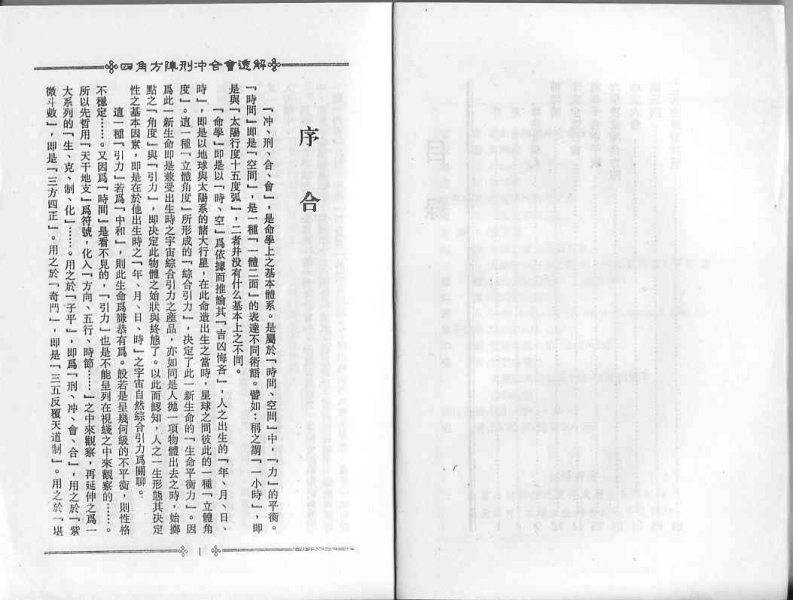 四角方陣刑冲合會透解
序
合
「冲、刑、合、會」，是命學上之基本體系。是屬於「時間、空間」中，「力」的平衡。
「時間」即是「空間」，是一種「一體二面」的表達不同術語。譬如：稱之謂「一小時」，即
是與「太陽行度十五度弧」，二者并没有什么基本上之不同。
「命學」即是以「時、空」爲依據而推論其「吉凶悔吝」，人之出生的「年、月、日、
時」，即是以地球與太陽系的諸大行星，在此命造出生之當時，星球之間彼此的一種「立體角
度」。這一種「立體角度」所形成的「綜合引力」，决定了此一新生命的「生命平衡力」。因
爲此一新生命即是兼受出生時之宇宙綜合引力之産品，亦如同是人拋一項物體出去之時，始擲
點之「角度」與「引力」，即决定此物體之始狀與終態了。以此而認知，人之一生形態其决定
性之基本因素，即是在於他出生時之「年、月、日、時」之宇宙自然綜合引力爲關聯。
這一種「引力」若爲「中和」，則此生命爲謙恭有爲。設若是呈幾何級的不平衡，則性格
不穩定……。又因爲「時間」是看不見的，「引力」也是不能呈列在視綫之中來觀察的……。
所以先哲用「天干地支」爲符號，化入「方向、五行、時節……」之中來觀察，再延伸之爲一
大系列的「生、克、制、化」……。用之於「子平」，即爲「刑、冲、會、合」，用之於「紫
微斗數」，即是「三方四正」。用之於「奇門」，即是「三五反覆天道制」。用之於「堪
1